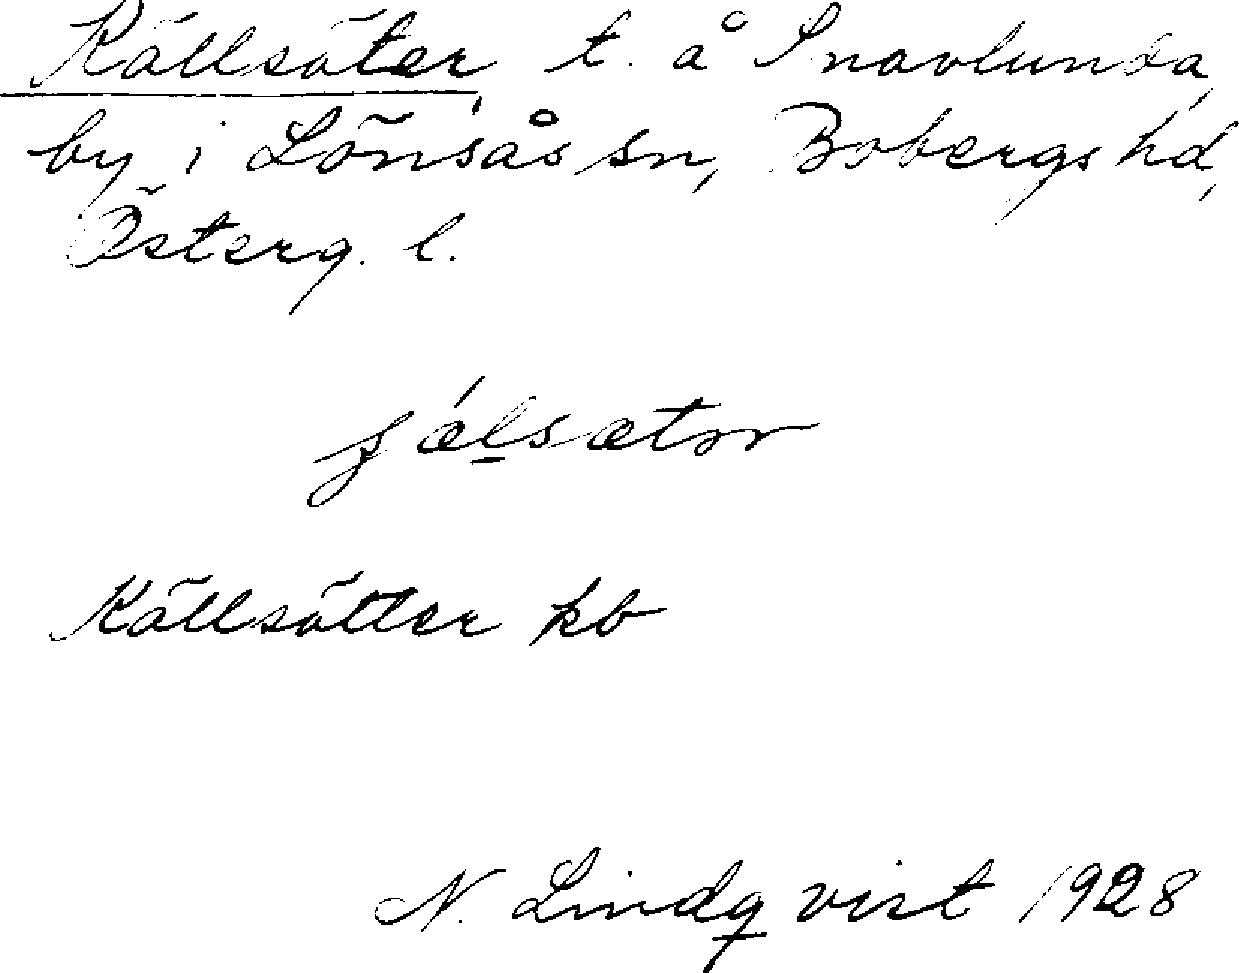 Källsäter, t. å Snavlunda
by i Lönsås sn, Bobergs hd,
Österg. l.
fǽlsætər
Källsätter kb
N. Lindqvist 1928